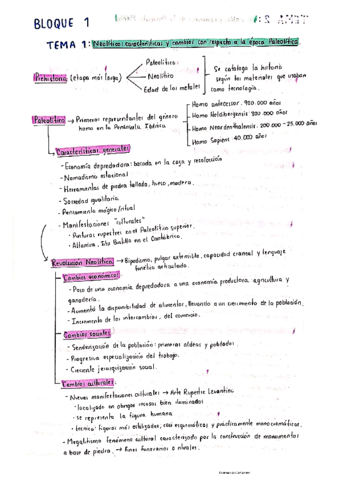 BLOQUE 1
TEMA 1: Neolítico: características y cambios con respecto a la época Paleolítica.
Prehistoria (etapa más larga)
Paleolítico.
Neolítico
Edad de los metales
Se cataloga la historia
según los materiales que usaban
como tecnología.
Paleolítico → Primeros representantes del género
homo en la Península Ibérica
Homo antecessor. 900.000 años
Homo Heidelbergensis. 300.000 años
Homo Neanderthalensis. 200.000 - 25.000 años
Homo Sapiens. 40.000 años
Características generales
- Economía depredadora: basada en la caza y recolección
- Nomadismo estacional
- Herramientas de piedra tallada, hueso, madera.
- Sociedad igualitaria.
- Pensamiento mágico/ritual
- Manifestaciones "culturales"
· Pinturas rupestres en el Paleolítico superior.
· Altamira, Tito Bustillo en el Cantábrico.
Revolución Neolítica → Bipedismo, pulgar extensible, capacidad craneal y lenguaje
fonético articulado.
Cambios económicos
- Paso de una economía depredadora a una economía productora, agricultura y
ganadería.
- Aumentó la disponibilidad de alimentos, llevando a un crecimiento de la población.
- Incremento de los intercambios, del comercio.
Cambios sociales
- Sendentarización de la población: primeras aldeas y poblados.
- Progresiva especialización del trabajo.
- Creciente jerarquización social.
Cambios culturales
- Nuevas manifestaciones culturales → Arte Rupestre Levantino
· localizado en abrigos rocosos bien iluminados
· se representa la figura humana
· técnica: figuras más estilizadas, casi esquemáticas y prácticamente monocromáticas.
- Megalitismo fenómeno cultural caracterizado por la construcción de monumentos
a base de piedra. → fines funerarios o rituales.